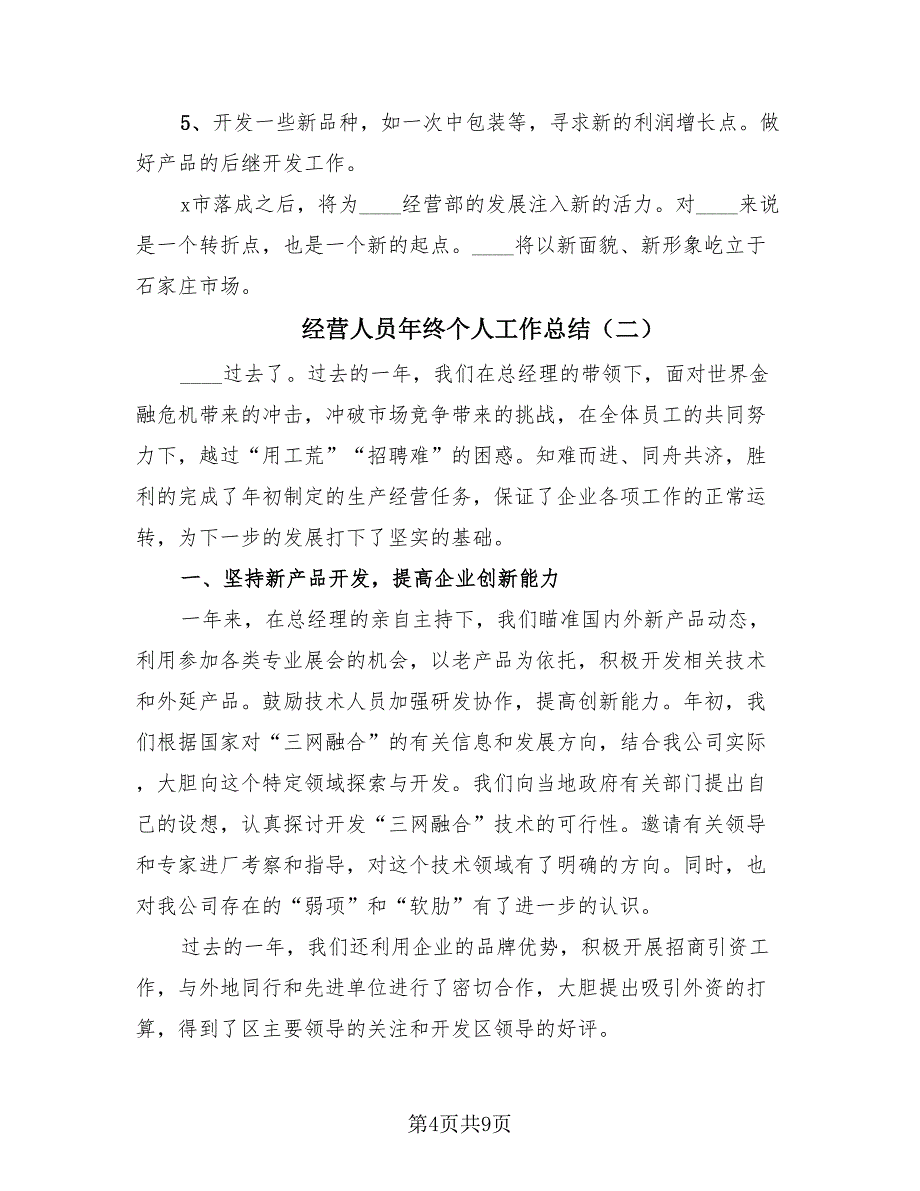 5、开发一些新品种，如一次中包装等，寻求新的利润增长点。做
好产品的后继开发工作。
x市落成之后，将为____经营部的发展注入新的活力。对____来说
是一个转折点，也是一个新的起点。____将以新面貌、新形象屹立于
石家庄市场。
经营人员年终个人工作总结（二）
____过去了。过去的一年，我们在总经理的带领下，面对世界金
融危机带来的冲击，冲破市场竞争带来的挑战，在全体员工的共同努
力下，越过“用工荒”“招聘难”的困惑。知难而进、同舟共济，胜
利的完成了年初制定的生产经营任务，保证了企业各项工作的正常运
转，为下一步的发展打下了坚实的基础。
一、坚持新产品开发，提高企业创新能力
一年来，在总经理的亲自主持下，我们瞄准国内外新产品动态，
利用参加各类专业展会的机会，以老产品为依托，积极开发相关技术
和外延产品。鼓励技术人员加强研发协作，提高创新能力。年初，我
们根据国家对“三网融合”的有关信息和发展方向，结合我公司实际
，大胆向这个特定领域探索与开发。我们向当地政府有关部门提出自
己的设想，认真探讨开发“三网融合”技术的可行性。邀请有关领导
和专家进厂考察和指导，对这个技术领域有了明确的方向。同时，也
对我公司存在的“弱项”和“软肋”有了进一步的认识。
过去的一年，我们还利用企业的品牌优势，积极开展招商引资工
作，与外地同行和先进单位进行了密切合作，大胆提出吸引外资的打
算，得到了区主要领导的关注和开发区领导的好评。
第4页共9页